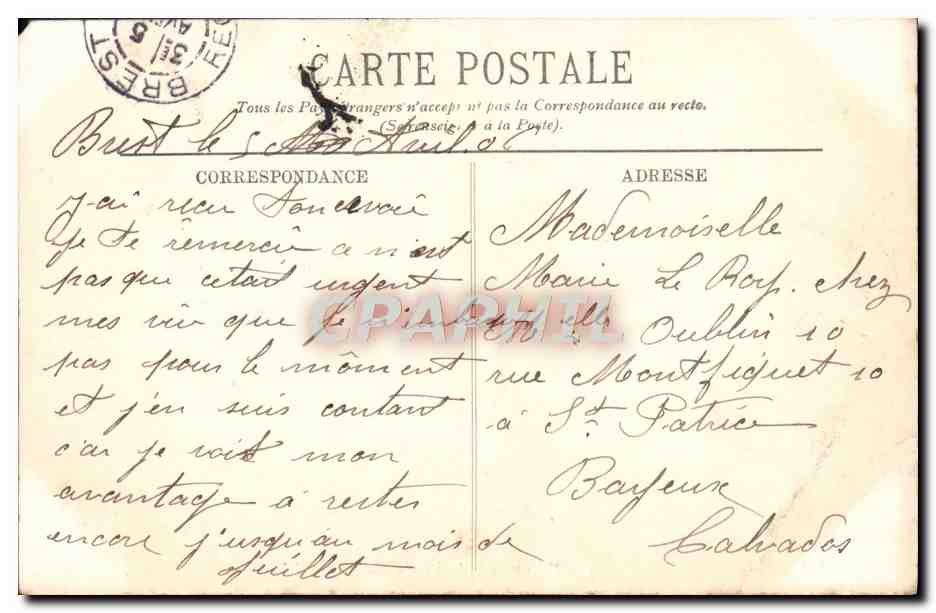 BREST
3E
5
AV
REC
CARTE POSTALE
Tous les Pays étrangers n'acceptent pas la Correspondance au recto.
(Se renseigner à la Poste).
Brest le 5 Avril 0
CORRESPONDANCE
J-ai recu ton envoie
Je te rêmercie a n'est
pas que cetait urgent
mes vu que je n'embar
pas pour le môment
et j'en suis contant
car je vois mon
avantage à rester
encore j'usqu'au mois de
juillet
ADRESSE
Mademoiselle
Marie Le Roy. chez
Melle Oublin 10
rue Montfiquet 10
à St. Patrice
Bayeux
Calvados
CPAPHIL